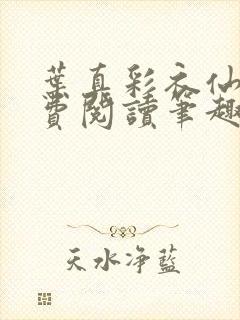 葉真彩衣仙
費閱讀筆趣
天水净藍